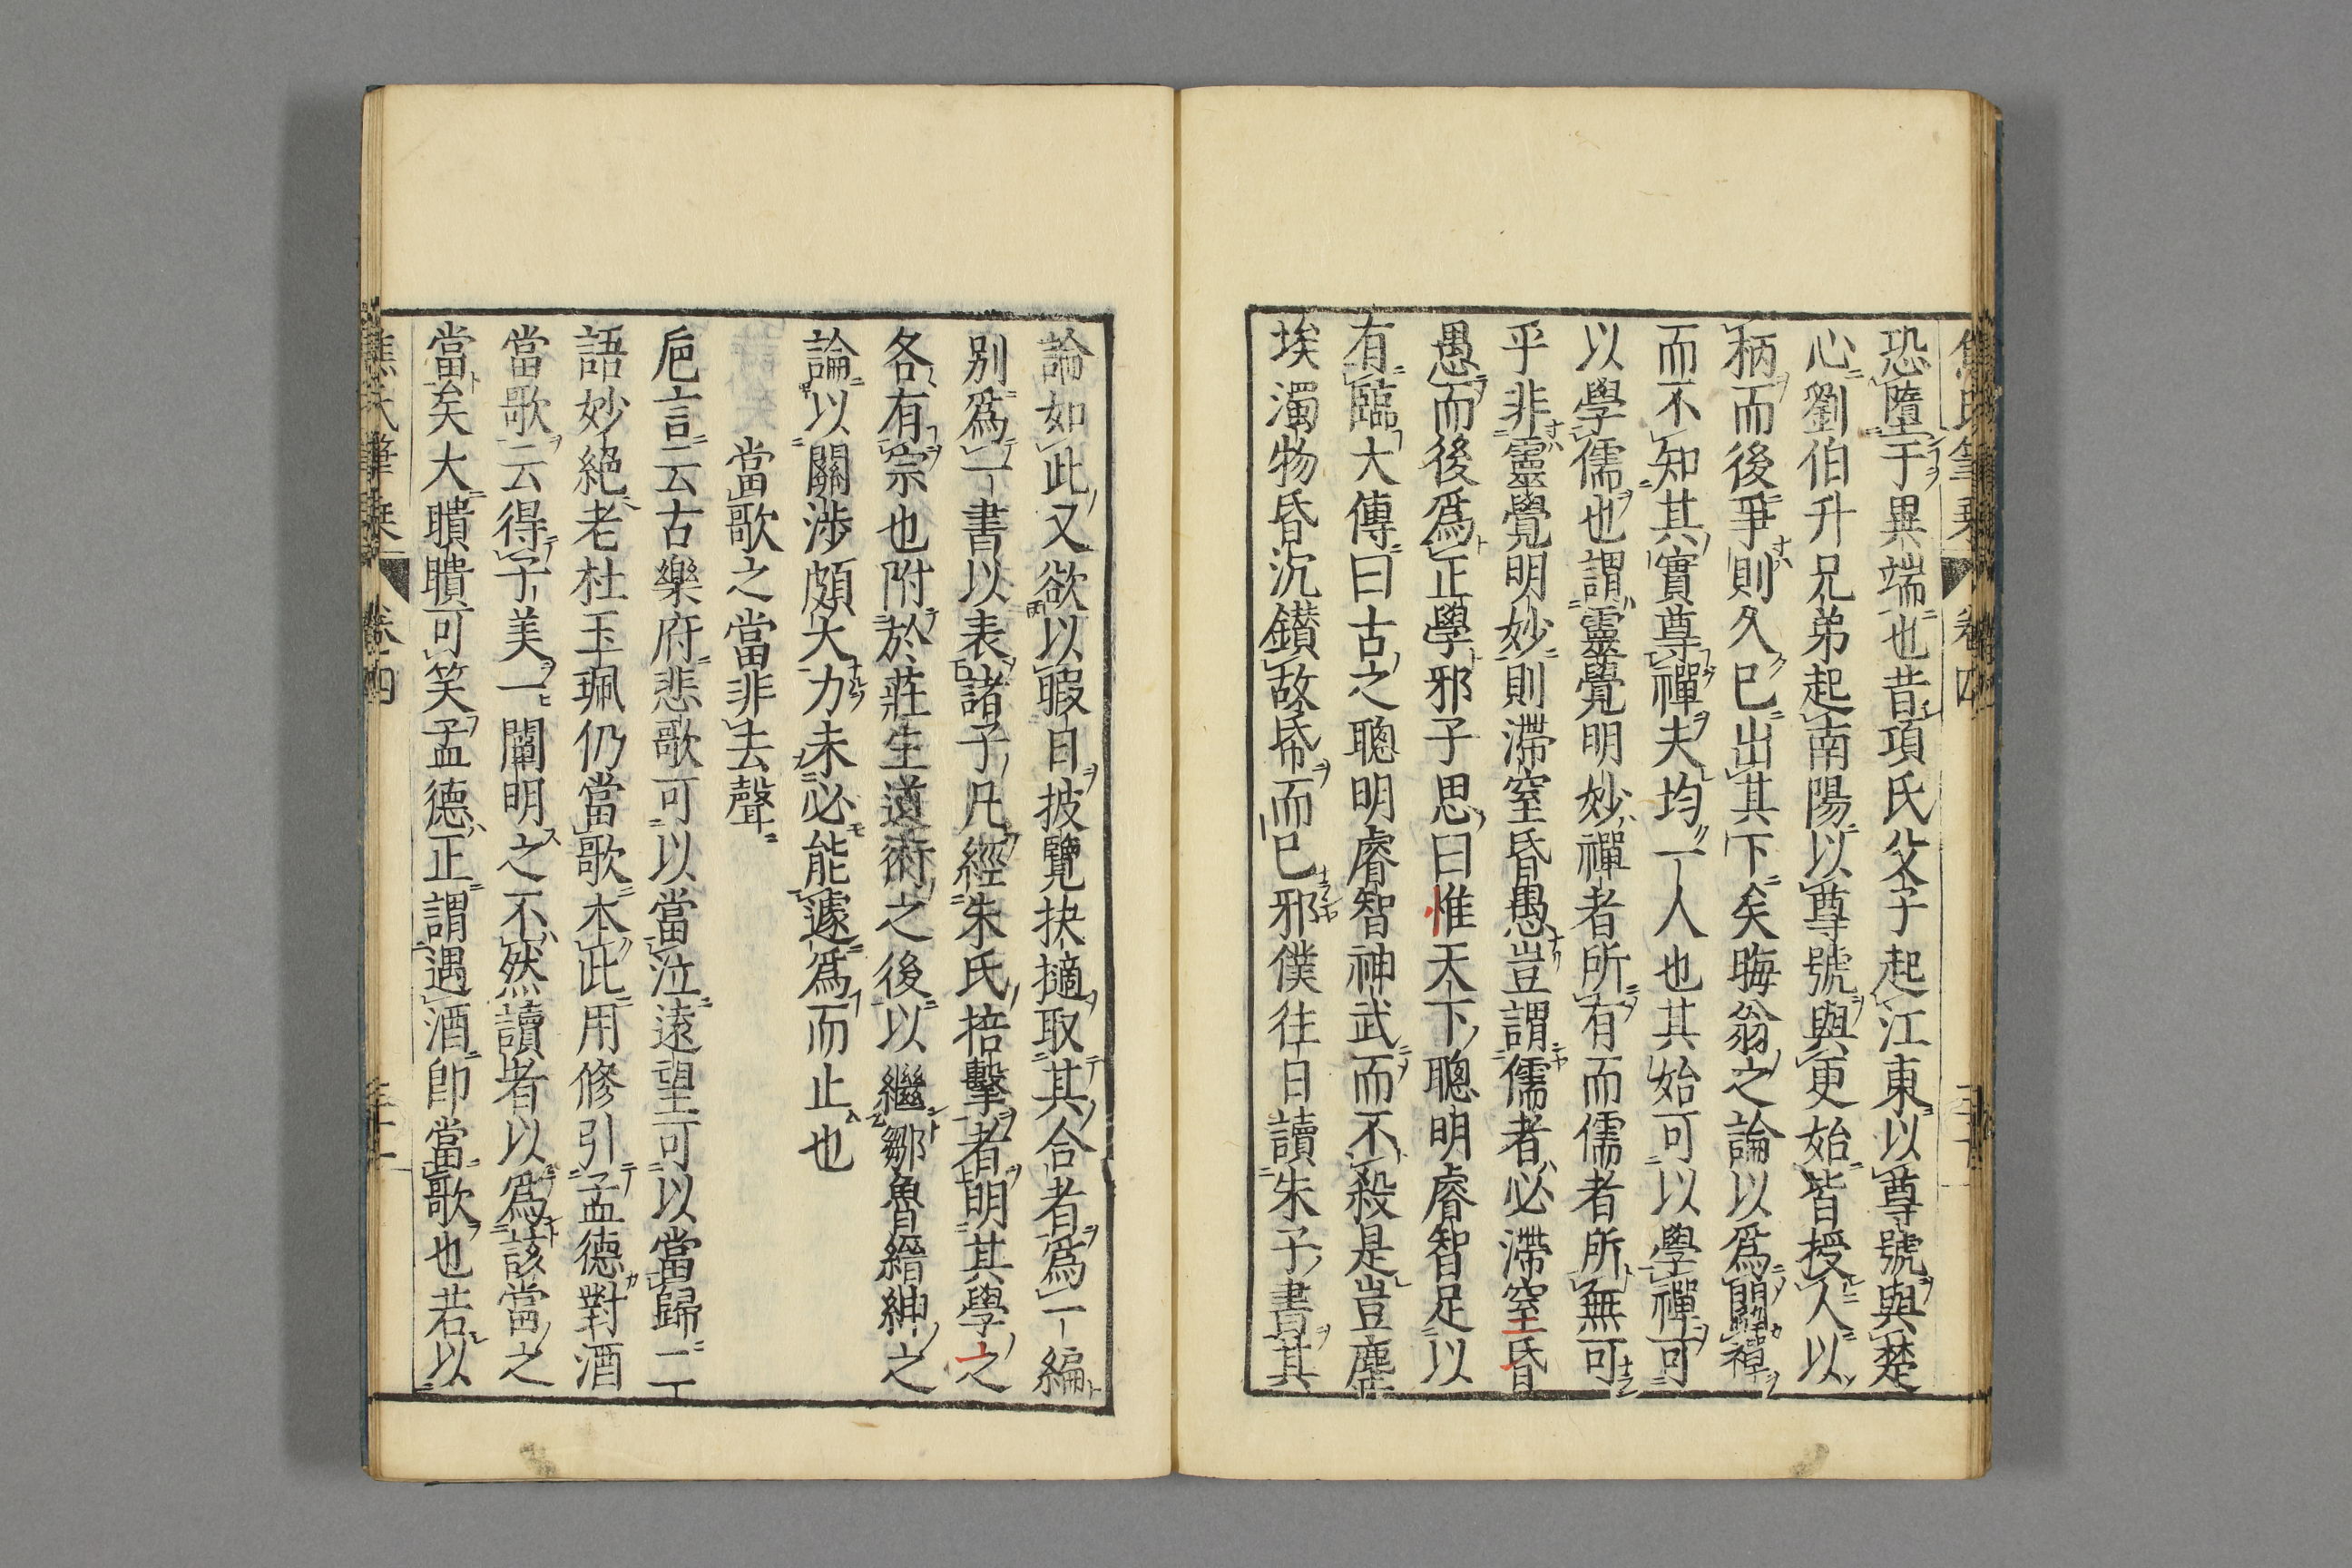 恐墮于異端也昔項氏父子起江東以尊號與楚
心劉伯升兄弟起南陽以尊號與更始皆授人以
柄而後爭則久巳出其下矣晦翁之論以爲闢禪
而不知其實尊禪夫均一人也其始可以學禪可
以學儒也謂靈覺明妙禪者所有而儒者所無可
乎非靈覺明妙則滯窒昏愚豈謂儒者必滯窒昏
愚而後爲正學邪子思曰惟天下聰明睿智足以
有臨大傳曰古之聰明睿智神武而不殺是豈塵
埃濁物昏沉鑚故帋而巳邪僕往日讀朱子書其
論如此又欲以暇日披覽抉擿取其合者爲一編
别爲一書以表諸子凡經朱氏掊擊者明其學之
各有宗也附於莊生道術之後以繼鄒魯縉紳之
論以關涉頗大力未必能遽爲而止也
當歌之當非去聲
巵言云古樂府悲歌可以當泣遠望可以當歸二
語妙絶老杜玉珮仍當歌本此用修引孟德對酒
當歌云得子美一闡明之不然讀者以爲該當之
當矣大聵聵可笑孟德正謂遇酒卽當歌也若以
焦氏筆乗
卷四